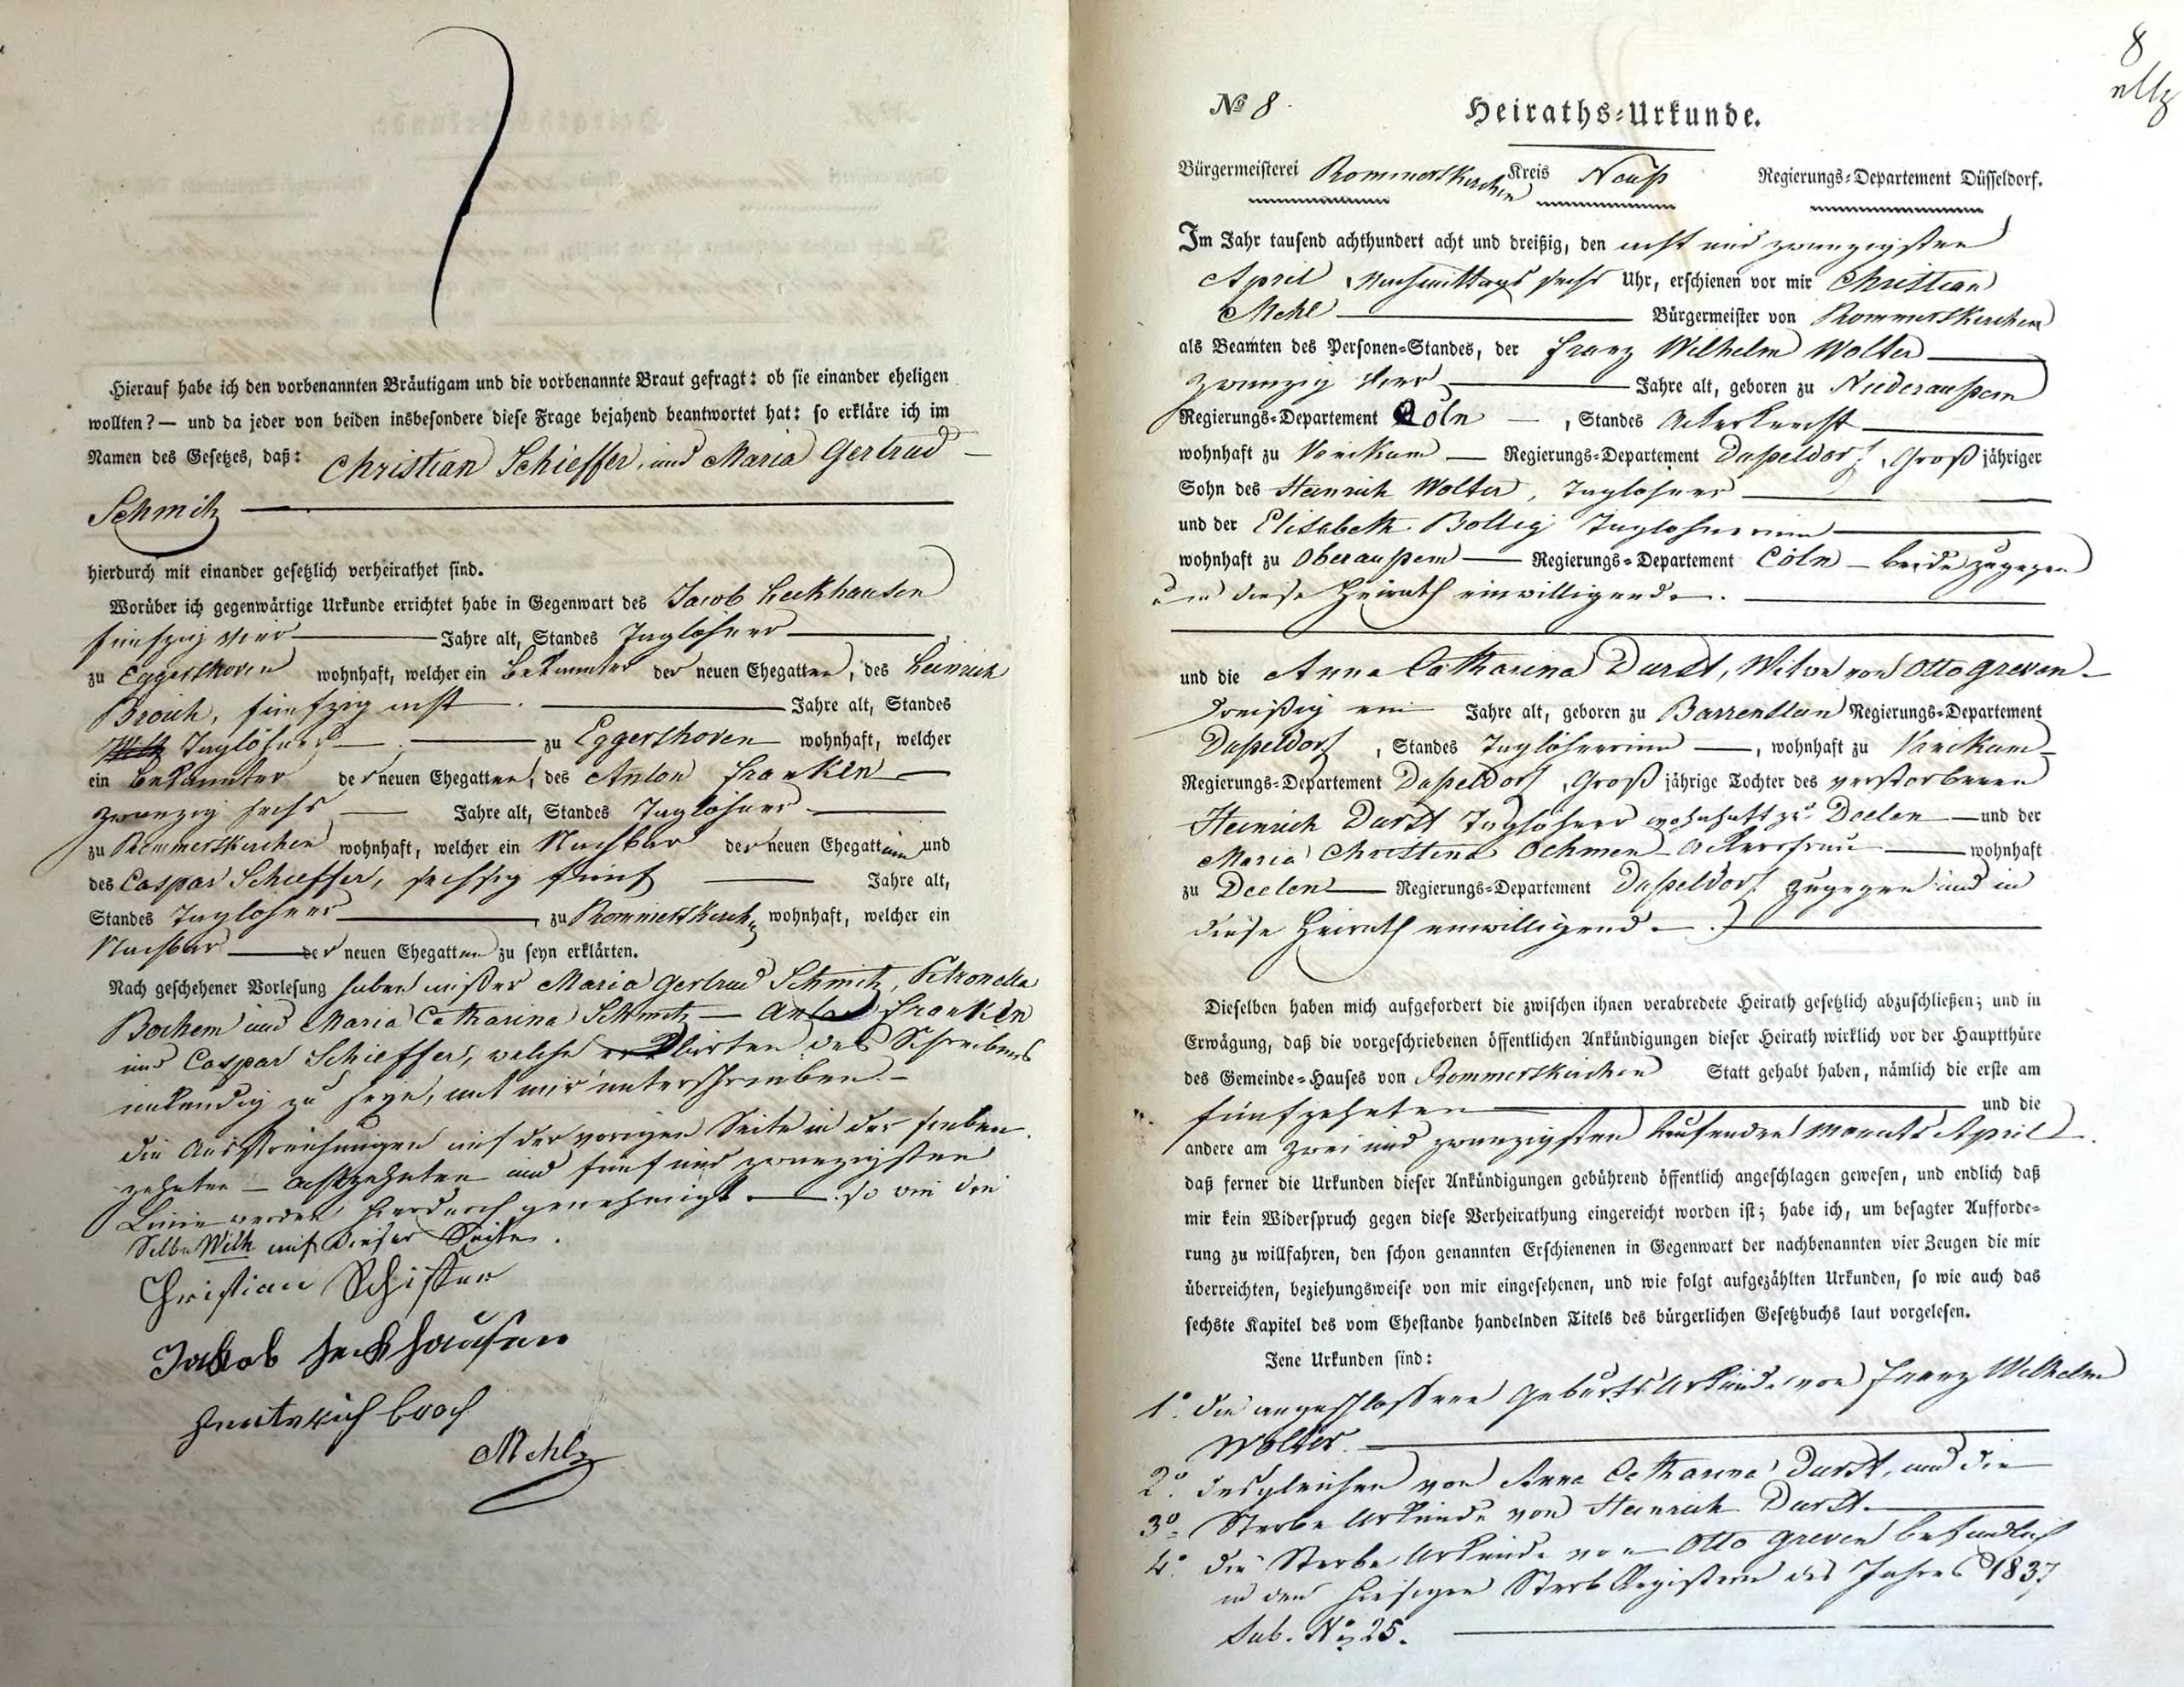 Hierauf habe ich den vorbenannten Bräutigam und die vorbenannte Braut gefragt: ob sie einander eheligen
wollten? — und da jeder von beiden insbesondere diese Frage bejahend beantwortet hat: so erkläre ich im
Namen des Gesetzes, daß: Christian Schieffer, und Maria Gertrud
Schmitz
hierdurch mit einander gesetzlich verheirathet sind.
Worüber ich gegenwärtige Urkunde errichtet habe in Gegenwart des Jacob Heckhausen
fünfzig vier Jahre alt, Standes Taglöhner
zu Eggershoven wohnhaft, welcher ein Bekannter der neuen Ehegatten, des Heinrich
Broich, fünfzig acht Jahre alt, Standes
Taglöhner zu Eggershoven wohnhaft, welcher
ein Bekannter der neuen Ehegatten, des Anton Franken
zwanzig sechs Jahre alt, Standes Taglöhner
zu Rommerskirchen wohnhaft, welcher ein Nachbar der neuen Ehegattin und
des Caspar Schieffer, sechszig fünf Jahre alt,
Standes Taglöhner, zu Rommerskirchen wohnhaft, welcher ein
Nachbar der neuen Ehegatten zu seyn erklärten.
Nach geschehener Vorlesung haben außer Maria Gertrud Schmitz, Petronella
Bochem und Maria Catharina Schmitz — Anton Franken
und Caspar Schieffer, welche erklärten des Schreibens
unkundig zu seyn, mit mir unterschrieben. —
die Ausstreichungen auf der vorigen Seite in der sieben
zehnten — achtzehnten und fünf und zwanzigsten
Linie werden hierdurch genehmigt — so wie die
Selbe Wilh auf dieser Seite.
Christian Schiffer
Jakob Heckhausen
Heinterich broch
Mehl
8
№ 8. Heiraths-Urkunde.
Bürgermeisterei Rommerskirchen Kreis Neuß Regierungs-Departement Düsseldorf.
Im Jahr tausend achthundert acht und dreißig, den acht und zwanzigsten
April Nachmittags sechs Uhr, erschienen vor mir Christian
Mehl Bürgermeister von Rommerskirchen
als Beamten des Personen-Standes, der Franz Wilhelm Wolter
zwanzig vier Jahre alt, geboren zu Niederaußem
Regierungs-Departement Cöln —, Standes Ackerknecht
wohnhaft zu Vanikum — Regierungs-Departement Düßeldorf, Großjähriger
Sohn des Heinrich Wolter, Taglöhner
und der Elisabeth Bollig Taglöhnerinn
wohnhaft zu Oberaußem — Regierungs-Departement Cöln — beide zugegen
und in diese Heirath einwilligend.
und die Anna Catharina Durst, Witwe von Otto Greven —
dreißig ein Jahre alt, geboren zu Barrenstein Regierungs-Departement
Düßeldorf, Standes Taglöhnerinn —, wohnhaft zu Vanikum —
Regierungs-Departement Düßeldorf, Großjährige Tochter des verstorbenen
Heinrich Durst Taglöhner wohnhaft zu Deelen — und der
Maria Christina Oehmen Ackersfrau — wohnhaft
zu Deelen — Regierungs-Departement Düßeldorf zugegen und in
diese Heirath einwilligend.
Dieselben haben mich aufgefordert die zwischen ihnen verabredete Heirath gesetzlich abzuschließen; und in
Erwägung, daß die vorgeschriebenen öffentlichen Ankündigungen dieser Heirath wirklich vor der Hauptthüre
des Gemeinde-Hauses von Rommerskirchen Statt gehabt haben, nämlich die erste am
fünfzehnten und die
andere am zwei und zwanzigsten laufenden Monats April
daß ferner die Urkunden dieser Ankündigungen gebührend öffentlich angeschlagen gewesen, und endlich daß
mir kein Widerspruch gegen diese Verheirathung eingereicht worden ist; habe ich, um besagter Aufforde-
rung zu willfahren, den schon genannten Erschienenen in Gegenwart der nachbenannten vier Zeugen die mir
überreichten, beziehungsweise von mir eingesehenen, und wie folgt aufgezählten Urkunden, so wie auch das
sechste Kapitel des vom Ehestande handelnden Titels des bürgerlichen Gesetzbuchs laut vorgelesen.
Jene Urkunden sind:
1° die angeschlossene Geburts Urkunde von Franz Wilhelm
Wolter.
2° desgleichen von Anna Catharina Durst, und die
3° Sterbe Urkunde von Heinrich Durst.
4° die Sterbe Urkunde von Otto Greven befindlich
in den hiesigen Sterb Registern des Jahres 1837
sub. No 25.